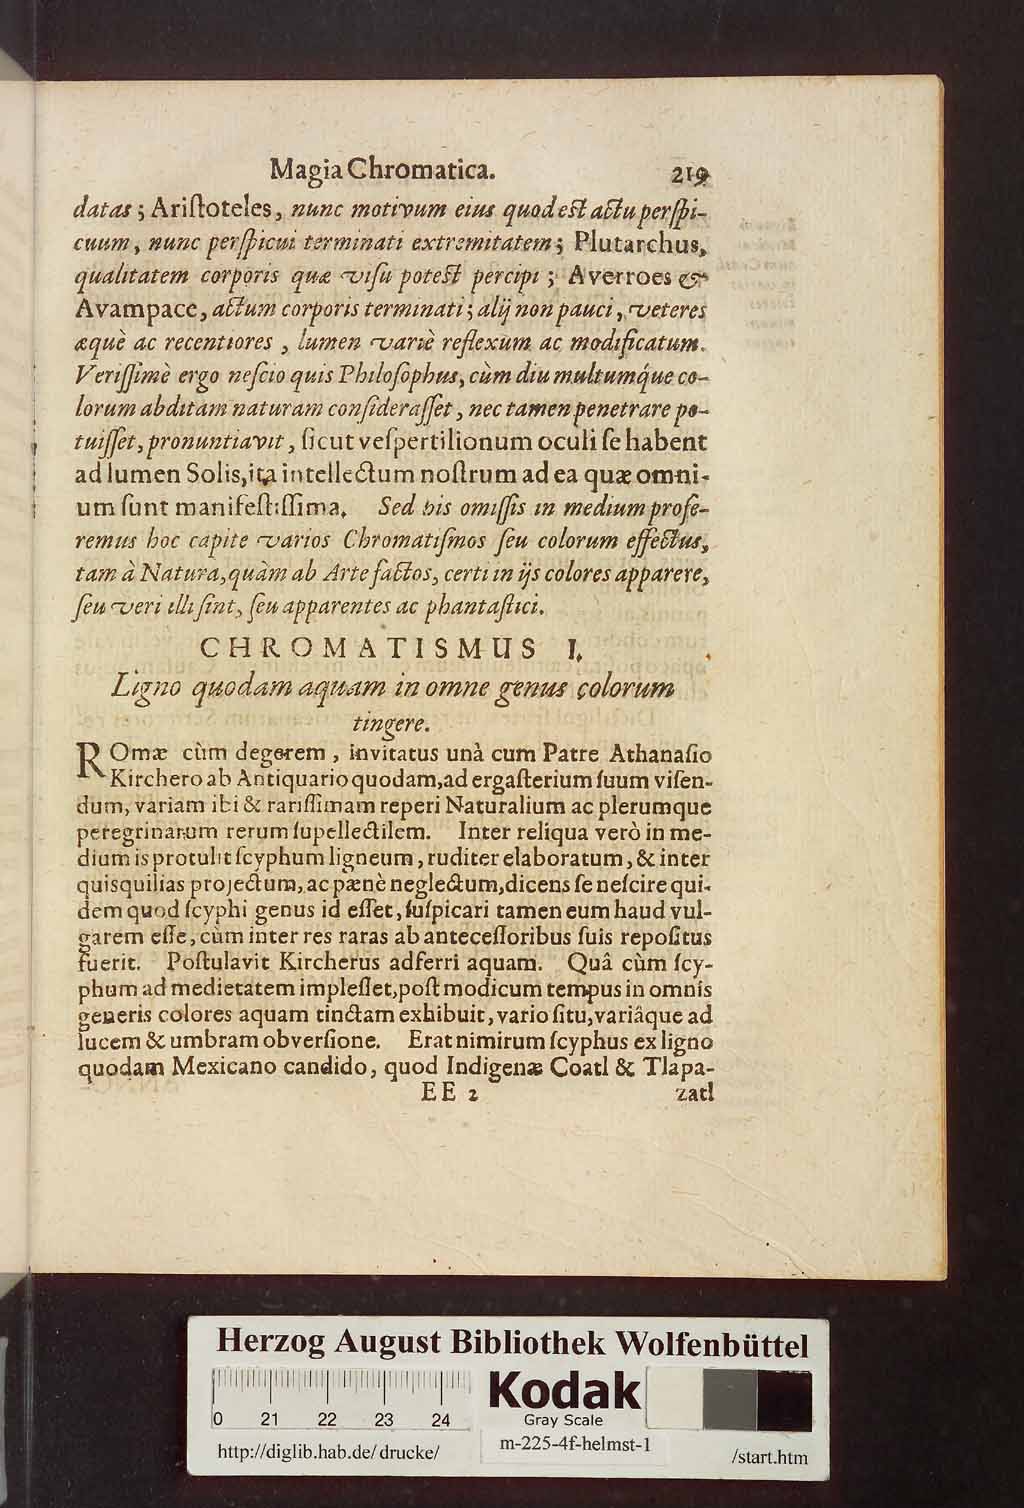 Magia Chromatica. 219
datas; Ariſtoteles, nunc motivum eius quod eſt actu perſpi-
cuum, nunc perſpicui terminati extremitatem; Plutarchus,
qualitatem corporis quæ viſu poteſt percipi; Averroes &
Avampace, actum corporis terminati; alij non pauci, veteres
æquè ac recentiores, lumen variè reflexum ac modificatum.
Veriſſimè ergo neſcio quis Philoſophus, cùm diu multumq́ue co-
lorum abditam naturam conſideraſſet, nec tamen penetrare po-
tuiſſet, pronuntiavit, ſicut veſpertilionum oculi ſe habent
ad lumen Solis, ita intellectum noſtrum ad ea quæ omni-
um ſunt manifeſtiſſima. Sed his omiſſis in medium profe-
remus hoc capite varios Chromatiſmos ſeu colorum effectus,
tam à Natura, quàm ab Arte factos, certi in ijs colores apparere,
ſeu veri illi ſint, ſeu apparentes ac phantaſtici.
CHROMATISMUS I.
Ligno quodam aquam in omne genus colorum
tingere.
ROmæ cùm degerem, invitatus unà cum Patre Athanaſio
Kirchero ab Antiquario quodam, ad ergaſterium ſuum viſen-
dum, variam ibi & rariſſimam reperi Naturalium ac plerumque
peregrinarum rerum ſupellectilem. Inter reliqua verò in me-
dium is protulit ſcyphum ligneum, ruditer elaboratum, & inter
quisquilias projectum, ac pænè neglectum, dicens ſe neſcire qui-
dem quod ſcyphi genus id eſſet, ſuſpicari tamen eum haud vul-
garem eſſe, cùm inter res raras ab anteceſſoribus ſuis repoſitus
fuerit. Poſtulavit Kircherus adferri aquam. Quâ cùm ſcy-
phum ad medietatem impleſſet, poſt modicum tempus in omnis
generis colores aquam tinctam exhibuit, vario ſitu, variâque ad
lucem & umbram obverſione. Erat nimirum ſcyphus ex ligno
quodam Mexicano candido, quod Indigenæ Coatl & Tlapa-
EE 2 zatl
Herzog August Bibliothek Wolfenbüttel
0 21 22 23 24
Kodak
Gray Scale
http://diglib.hab.de/drucke/
m-225-4f-helmst-1
/start.htm